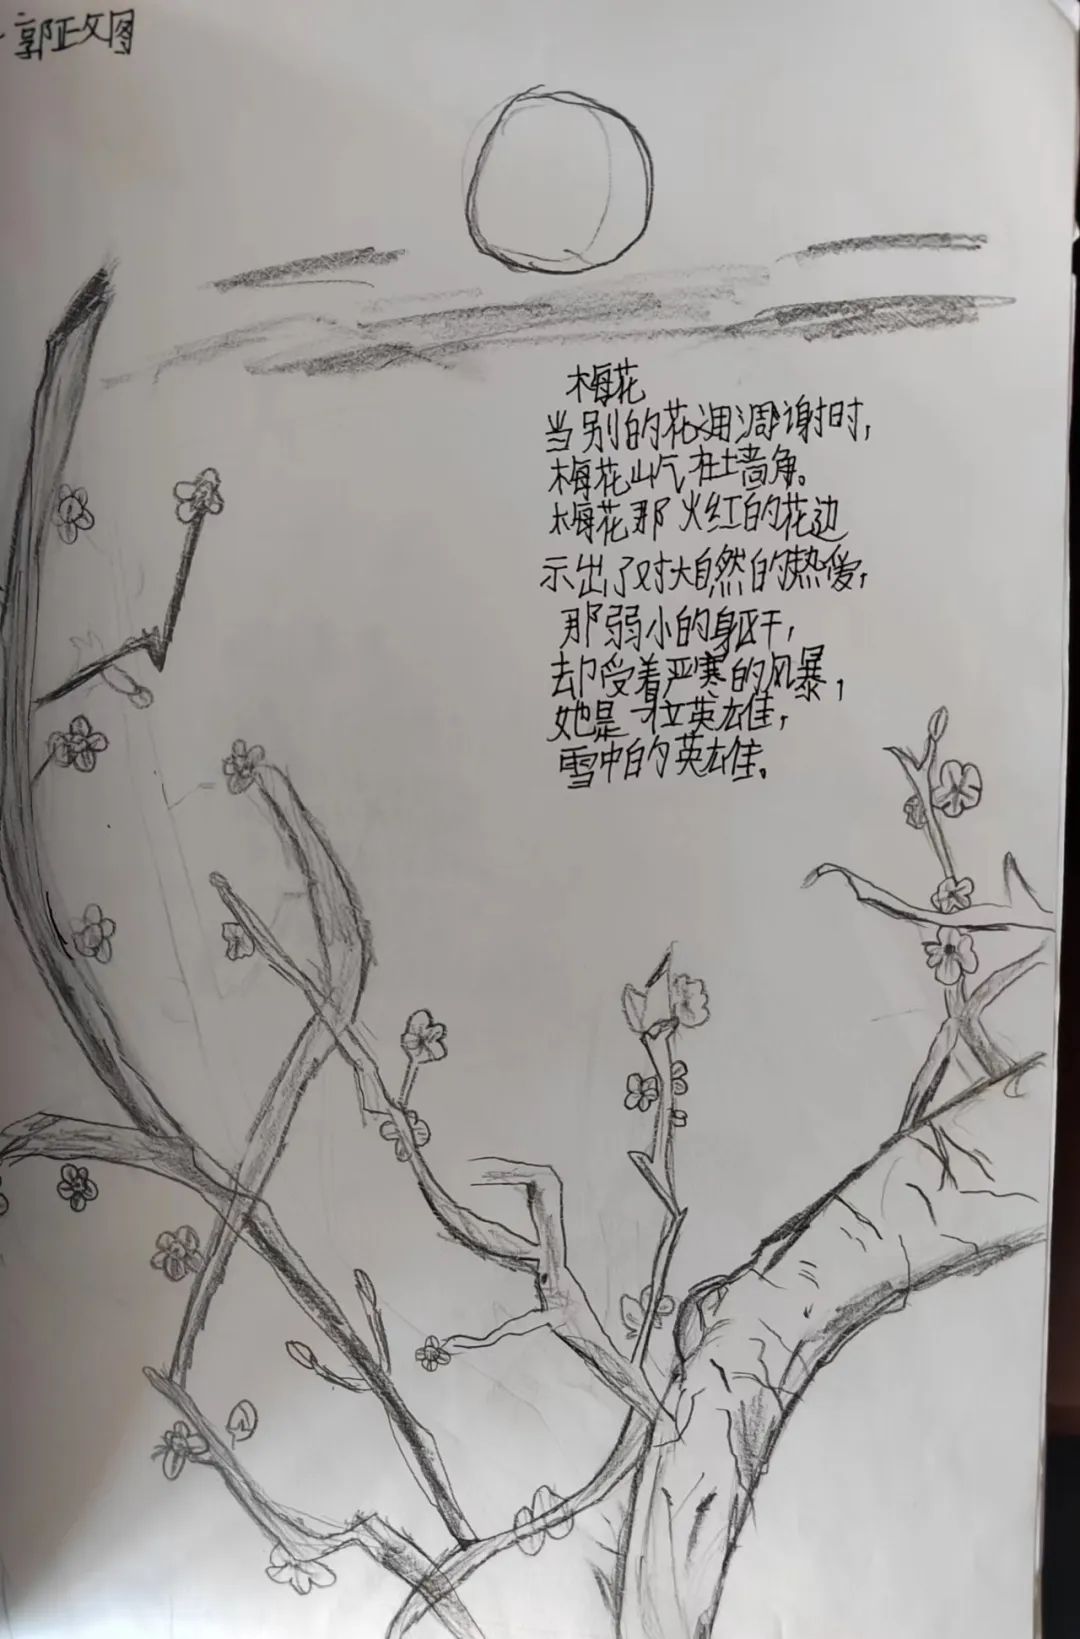 郭政文图
梅花
当别的花凋谢时，
梅花山气在墙角。
梅花那火红的花边
示出了对大自然的热爱，
那弱小的身躯干，
却受着严寒的风暴，
她是一位英雄，
雪中的英雄。